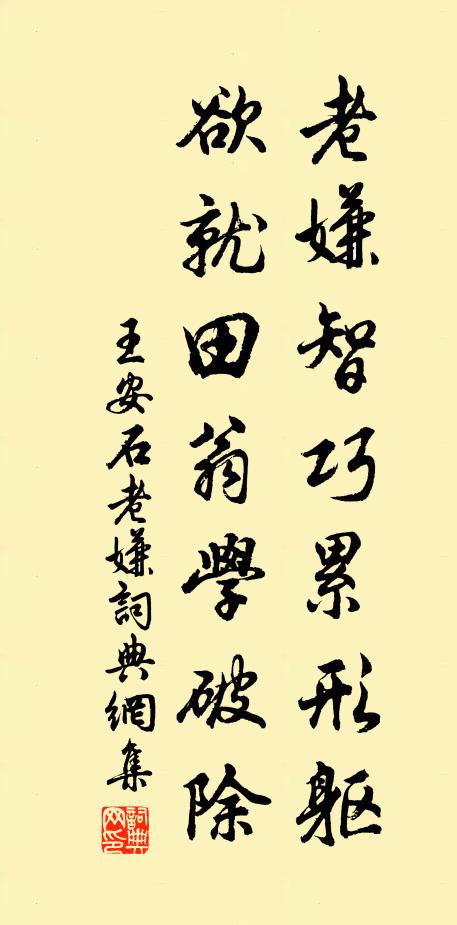 老嫌智巧累形軀
欲就田翁學破除
王安石老嫌詞典網集
詞典網印